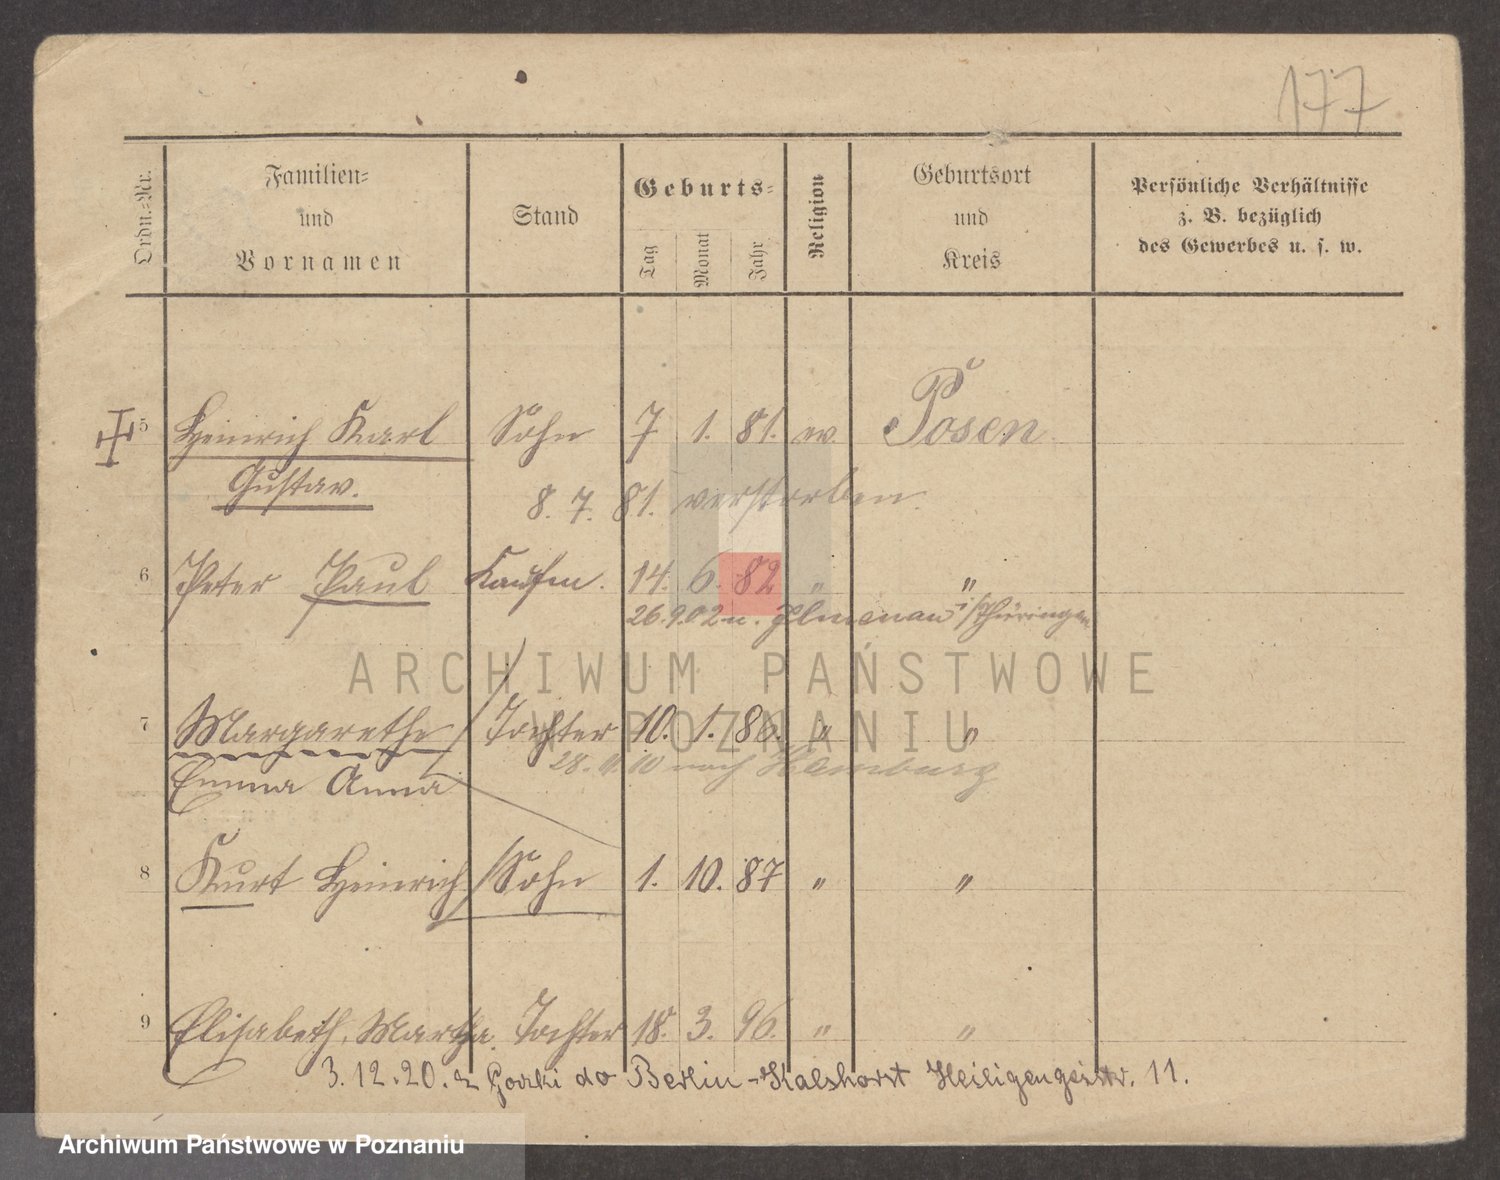 177
Ordn.-Nr.
Familien-
und
Vornamen
Stand
Geburts-
Tag
Monat
Jahr
Religion
Geburtsort
und
Kreis
Persönliche Verhältnisse
z. B. bezüglich
des Gewerbes u. s. w.
5 Heinrich Karl Sohn 7 1. 81. ev. Posen
Gustav.
8. 7. 81. verstorben.
6 Peter Paul Kaufm. 14. 6. 82 " "
26.9.02 n. Ilmenau i/Thüringen
7 Margarethe Tochter 10. 1. 86. " "
28. 11. 10 nach Hamburg
Emma Anna
8 Kurt Heinrich Sohn 1. 10. 87 " "
9 Elisabeth, Martha. Tochter 18. 3. 96. " "
3.12.20. z do Berlin-Kalshorst 11.
ARCHIWUM PAŃSTWOWE
W POZNANIU
Archiwum Państwowe w Poznaniu